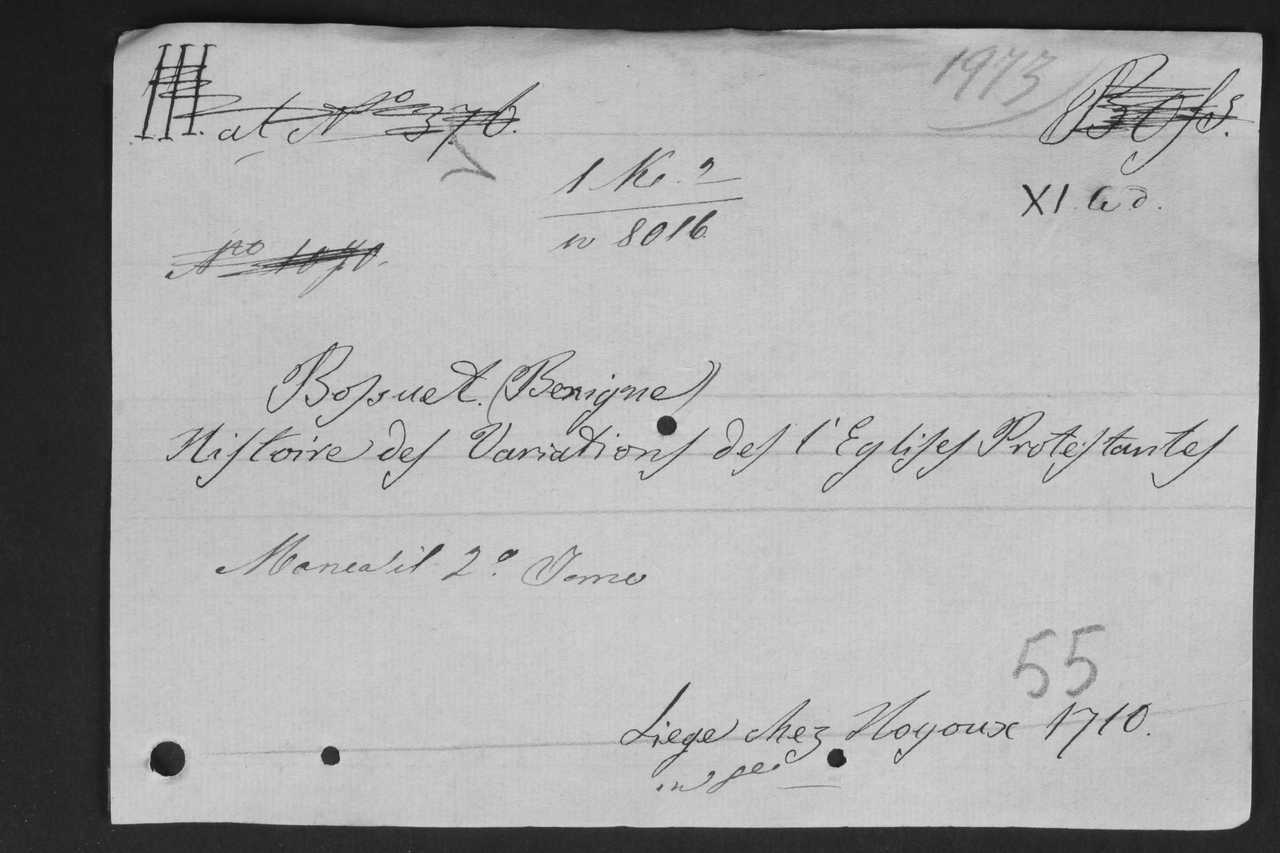 III. at No 376.
1973
Boss.
1 Kc. 2
XI. C. d.
w 8016
No 1070.
Bossuet (Benigne)
Histoire des Variations des l'Eglises Protestantes
Manca il 2o Tomo
55
Liege chez Hoyoux 1710.
in 8